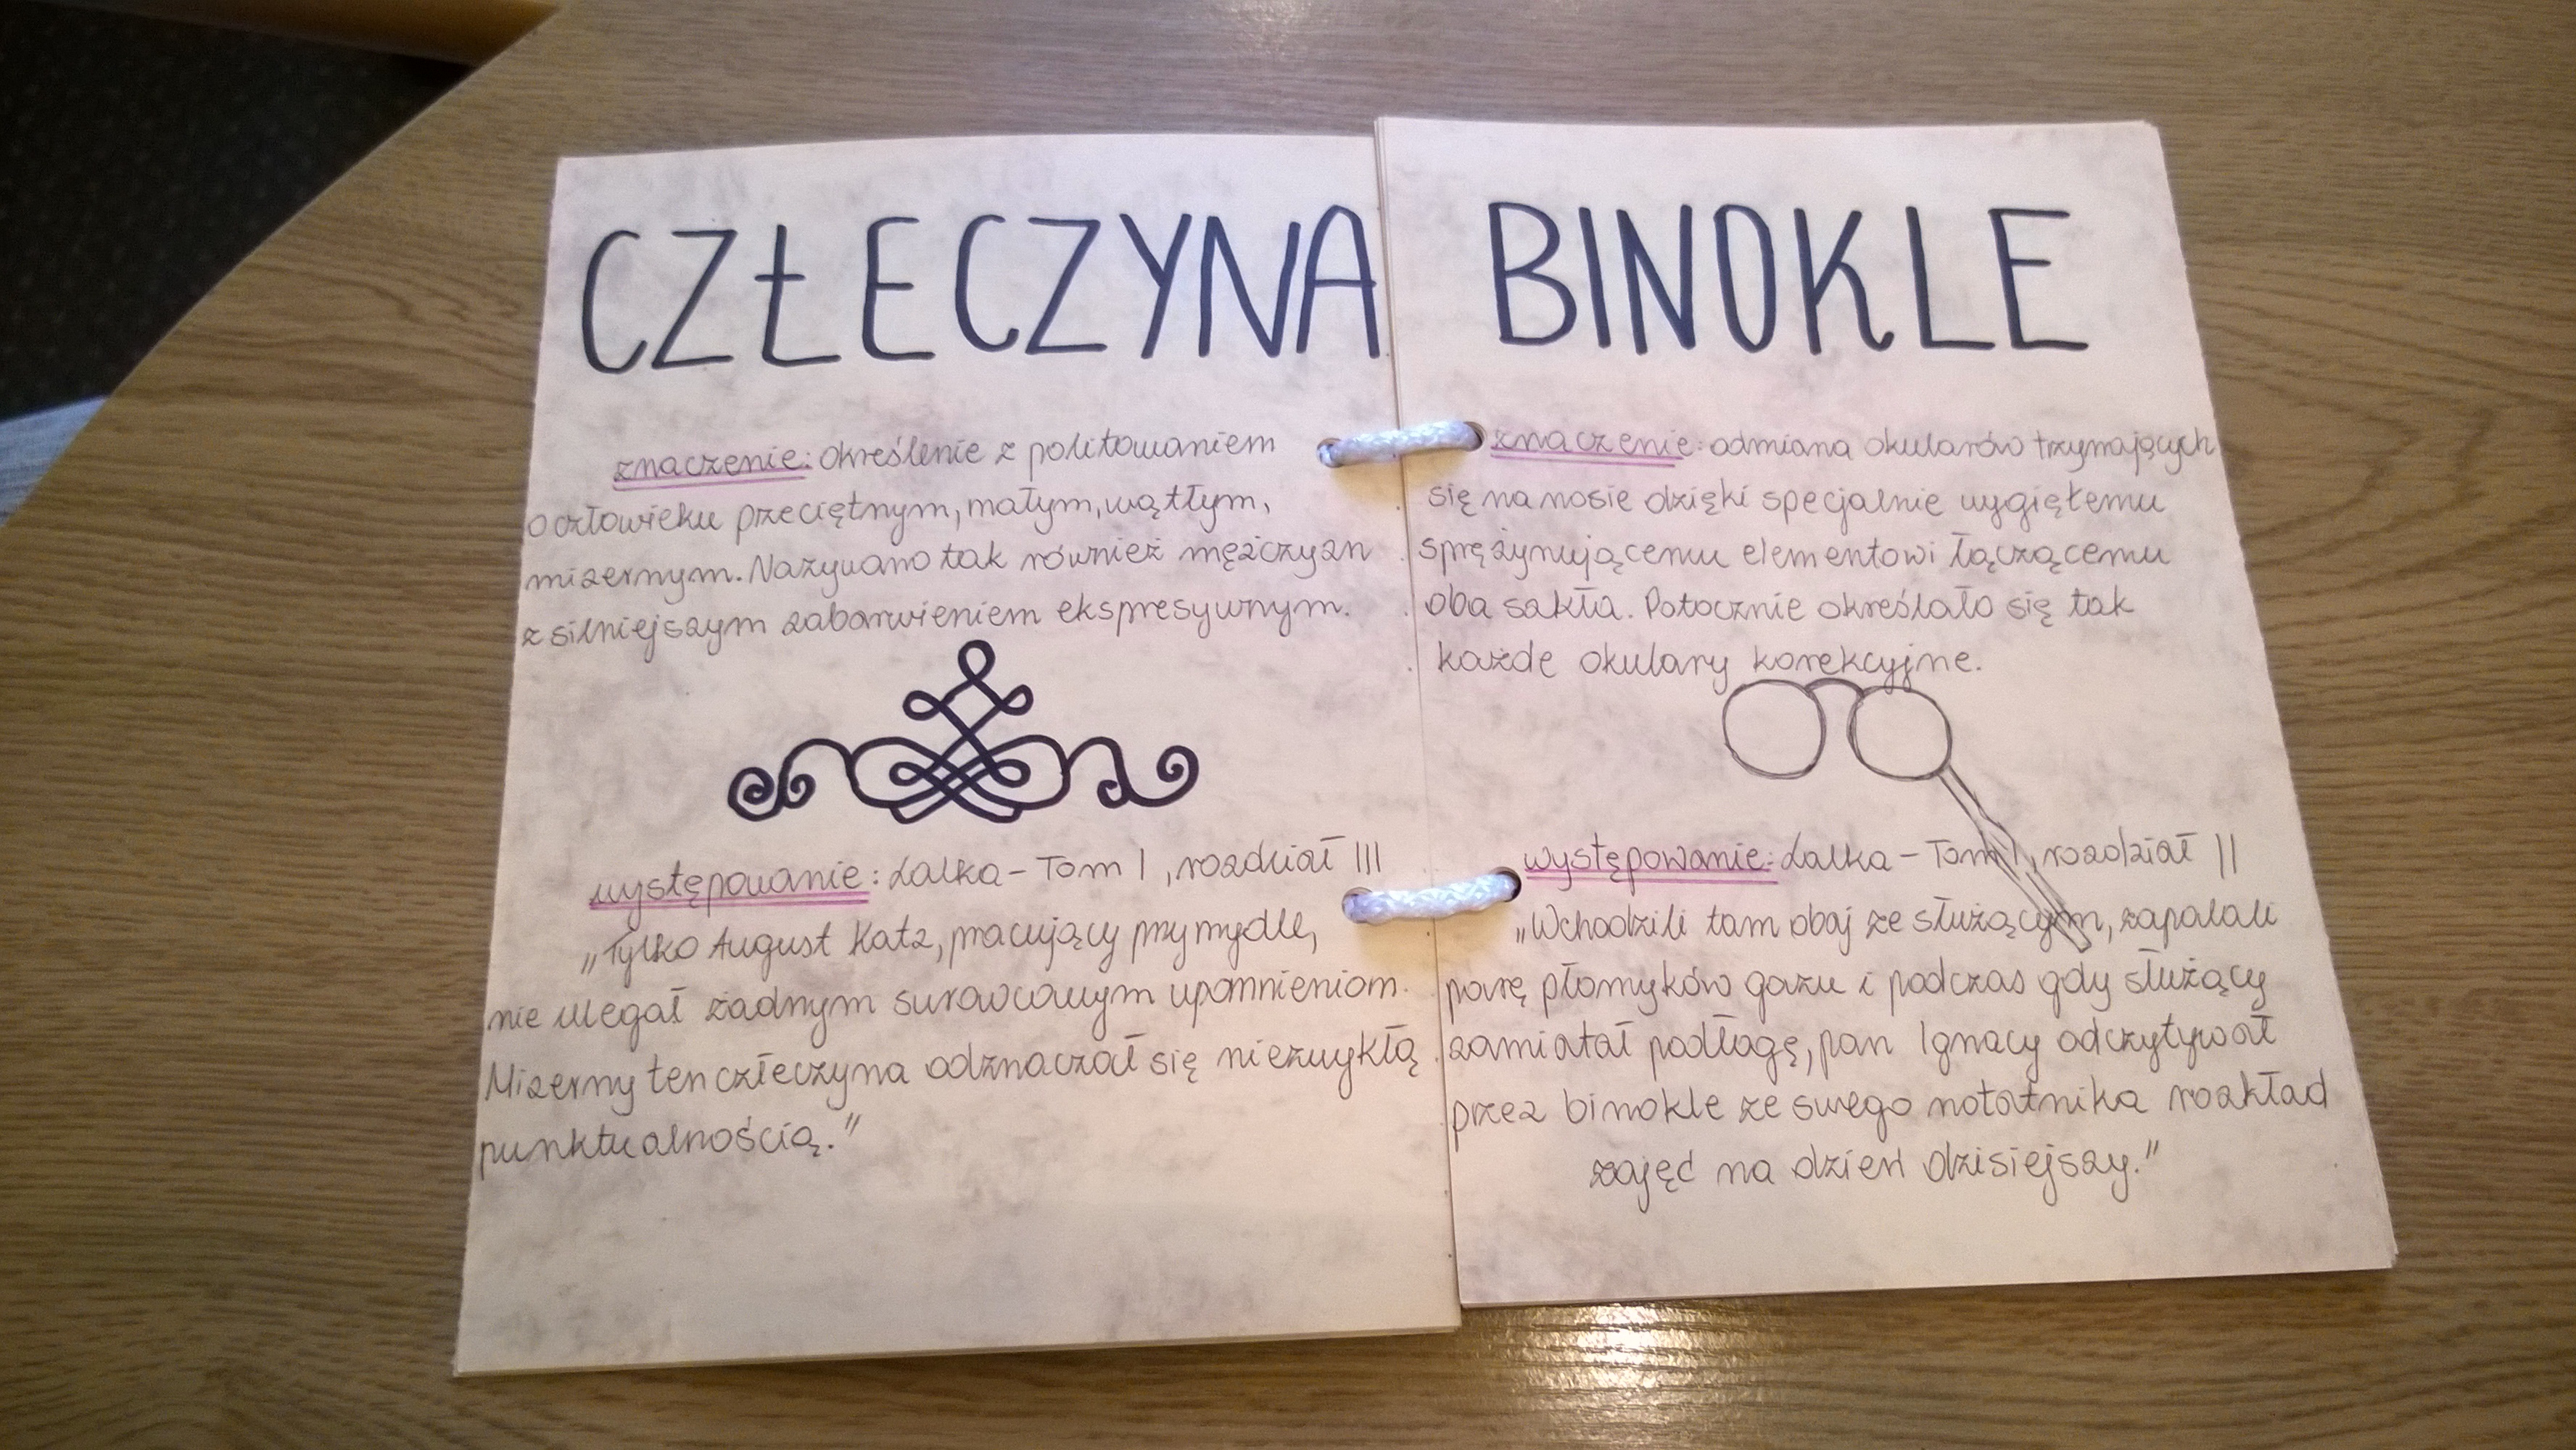 CZŁECZYNA
znaczenie: określenie z politowaniem
o człowieku przeciętnym, małym, wątłym,
mizernym. Nazywano tak również mężczyzn
z silniejszym zabarwieniem ekspresywnym.
występowanie: Lalka - Tom I, rozdział III
„Tylko August Katz, pracujący przy mydle,
nie ulegał żadnym surowcowym upomnieniom.
Mizerny ten człeczyna odznaczał się niezwykłą
punktualnością."
BINOKLE
znaczenie: odmiana okularów trzymających
się na nosie dzięki specjalnie wygiętemu
sprężynującemu elementowi łączącemu
oba szkła. Potocznie określało się tak
każde okulary korekcyjne.
występowanie: Lalka - Tom I, rozdział II
„Wchodzili tam obaj ze służącym, zapalali
parę płomyków gazu i podczas gdy służący
zamiatał podłogę, pan Ignacy odczytywał
przez binokle ze swego notatnika rozkład
zajęć na dzień dzisiejszy."